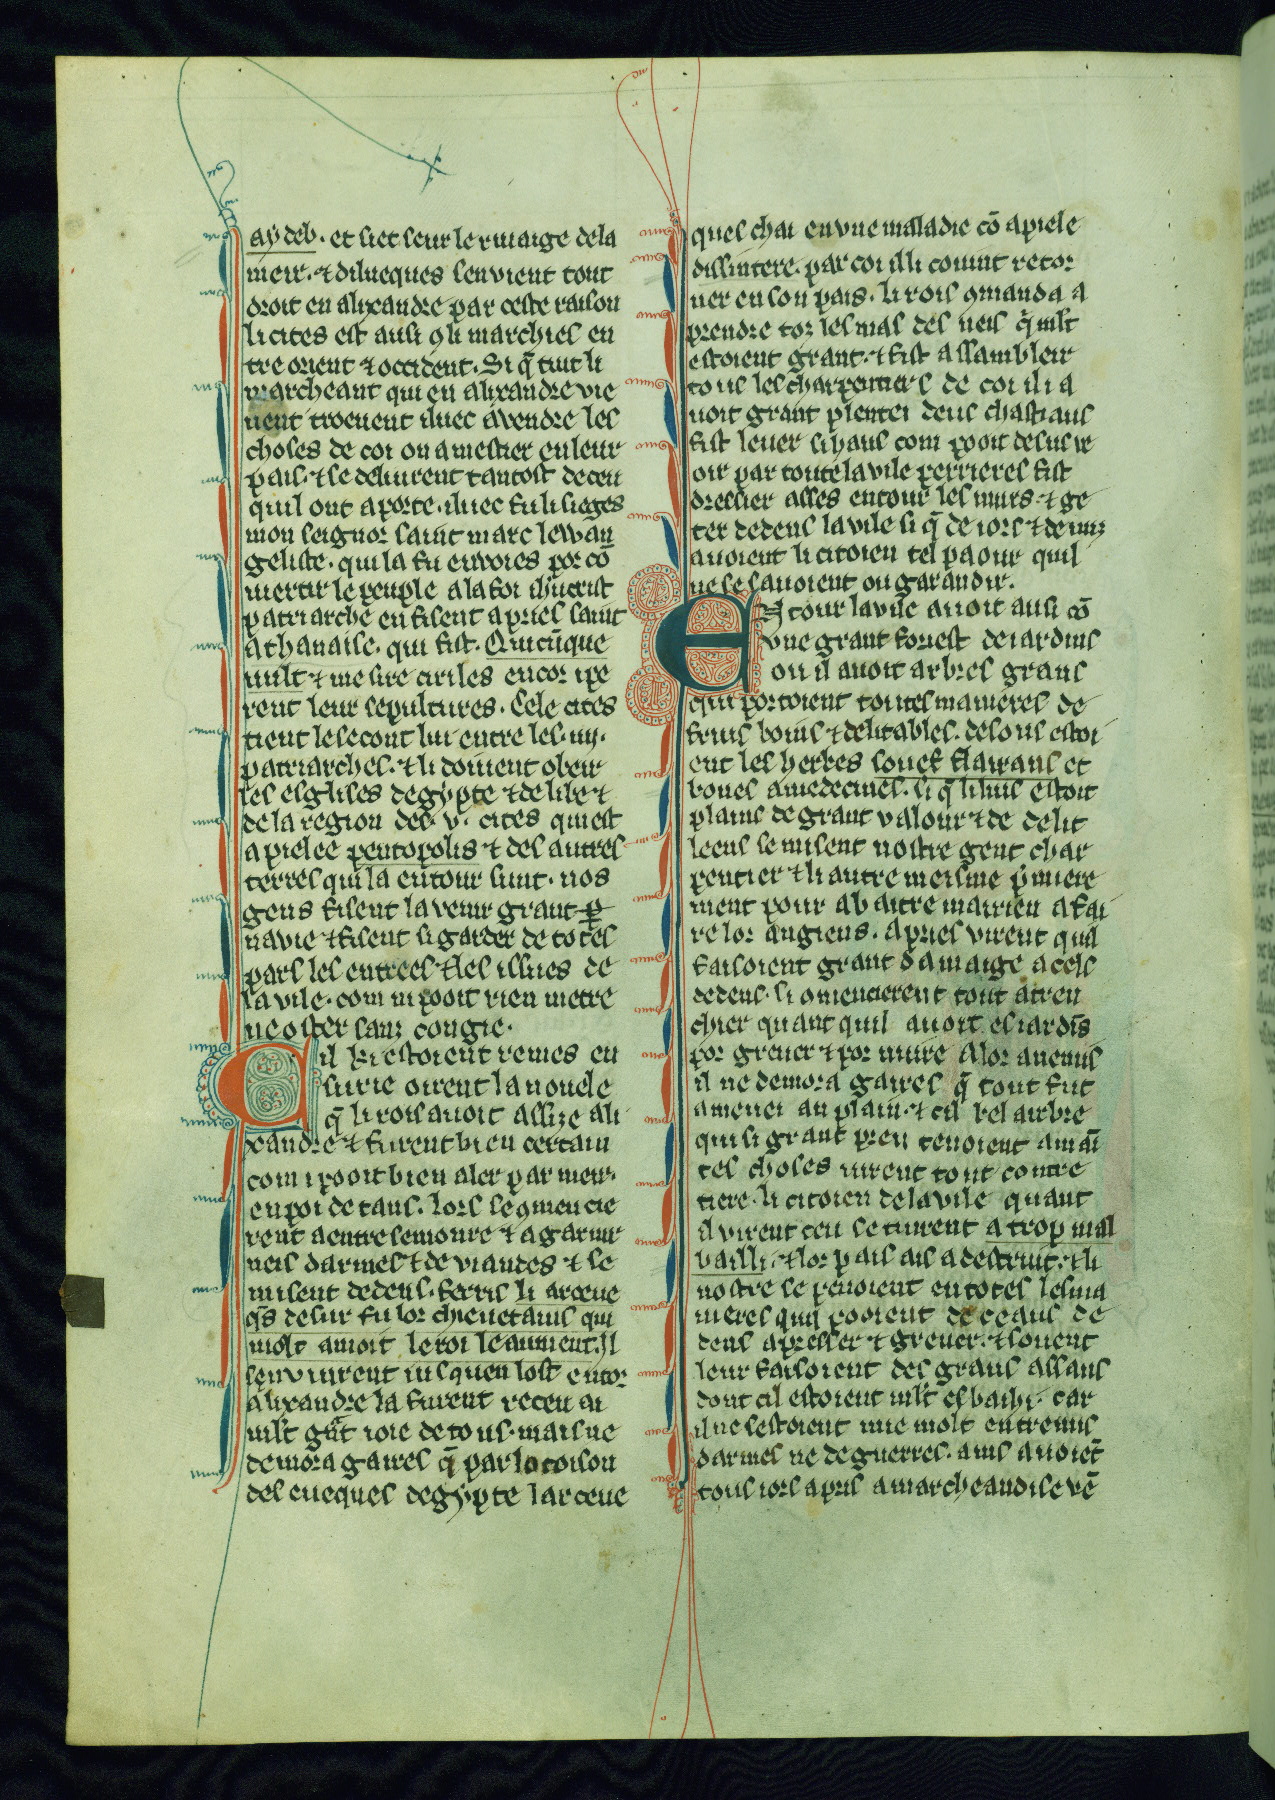 aydeb · et siet seur le riuaige de la
meir · ⁊ dilueques sen uient tout
droit en alixandre par ceste raison
li cites est ausi 9 li marchies en
tre orient ⁊ occident · Si q̄ tuit li
marcheant qui en alixandre vie
nent troeuent iluec a vendre les
choses de coi on a mestier en leur
pais · ⁊ se deliurent tantost de ceu
quil ont aporte · iluec fu li sieges
mon seignor saint marc lewan
geliste · qui la fu enuoies por cō
uertir le peuple a la foi ihucrist
patriarche en fisent apries saint
athanaise · qui fist · Quicūque
uult ⁊ me sire ciriles encor ipe
rent leur sepultures · Cele cites
tient le secont lui entre les · iiij ·
patriarches · ⁊ li doiuent obeir
les esglises degypte ⁊ de libe ⁊
de la region des · v · cites qui est
apielee pentopolis ⁊ des autres
terres qui la entour sunt · nos
gens fisent la venir grant p̄
nauie ⁊ fisent si garder de totes
pars les entrees ⁊ les issues de
la vile · com ni pooit rien metre
ne oster sanz congie ·
Cil ki estoient remes en
surie oirent la nouele
q̄ li rois auoit assize ali
xandre ⁊ furent bien certain
com i pooit bien aler par meir ·
en poi de tans · lors se 9mencie
rent a entre semoure ⁊ a garnir
neis darmes ⁊ de viandes ⁊ se
misent dedens · ferris li arceue
q̄s de sur fu lor chieuetains qui
molt amoit le roi leaument · Il
sen vinrent iusquen lost entor
alixandre la furent receu ai
mlt gāt ioie de tous · mais ne
demora gaires q̄ par lo coison
des eueques degypte larceue
quel chai en vne maladie cō apiele
dissintere · par coi illi couint retor
ner en son pais · li rois 9manda a
prendre toz les mas des neis q̄ mlt
estoient grant · ⁊ fist assambleir
tous les charpentiers de coi il i a
uoit grant plentei deus chastiaus
fist leuer si haus com pooit desus ve
oir par toute la vile perrieres fist
dressier asses entour les murs · ⁊ ge
ter dedens la vile si q̄ de iors ⁊ de nuiz
auoient li citoien tel paour quil
ne se sauoient ou garandir ·
En tour la vile auoit ausi cō
vne grant forest de iardins
ou il auoit arbres grans
qui portoient toutes manieres de
fruis bouis ⁊ delitables · desous estoi
ent les herbes souef flairans et
bones a medecines · si q̄ li luis estoit
plains de grant valour ⁊ de delit
leens se misent nostre gent char
pentier ⁊ li autre meisme p̄miere
ment pour abaitre mairien a fai
re lor angiens · apries virent quā
faisoient grant damaige a cels
dedens · si 9mencierent tout a tren
chier quant quil auoit es iardīs
por greuer ⁊ por nuire a lor anemis
il ne demora gaires q̄ tout fut
amenei au plain · ⁊ cil bel airbre
qui si grant preu tenoient a mai
tes choses uirent tout contre
tiere · li citoien de la vile quant
il virent ceu se tinrent a trop mal
bailli · ⁊ lor pais ais a destruit · ⁊ li
nostre se penoient en totes les ma
nieres quā pooient de ceaus de
dens apresser ⁊ greuer · ⁊ souent
leur faisoient des grans assaus
dont cil estoient mlt esbaihi · car
il ne sestoient mie molt entremis
darmes ne de guerres · ains auoiēt
tous iors apris a marcheandise vē